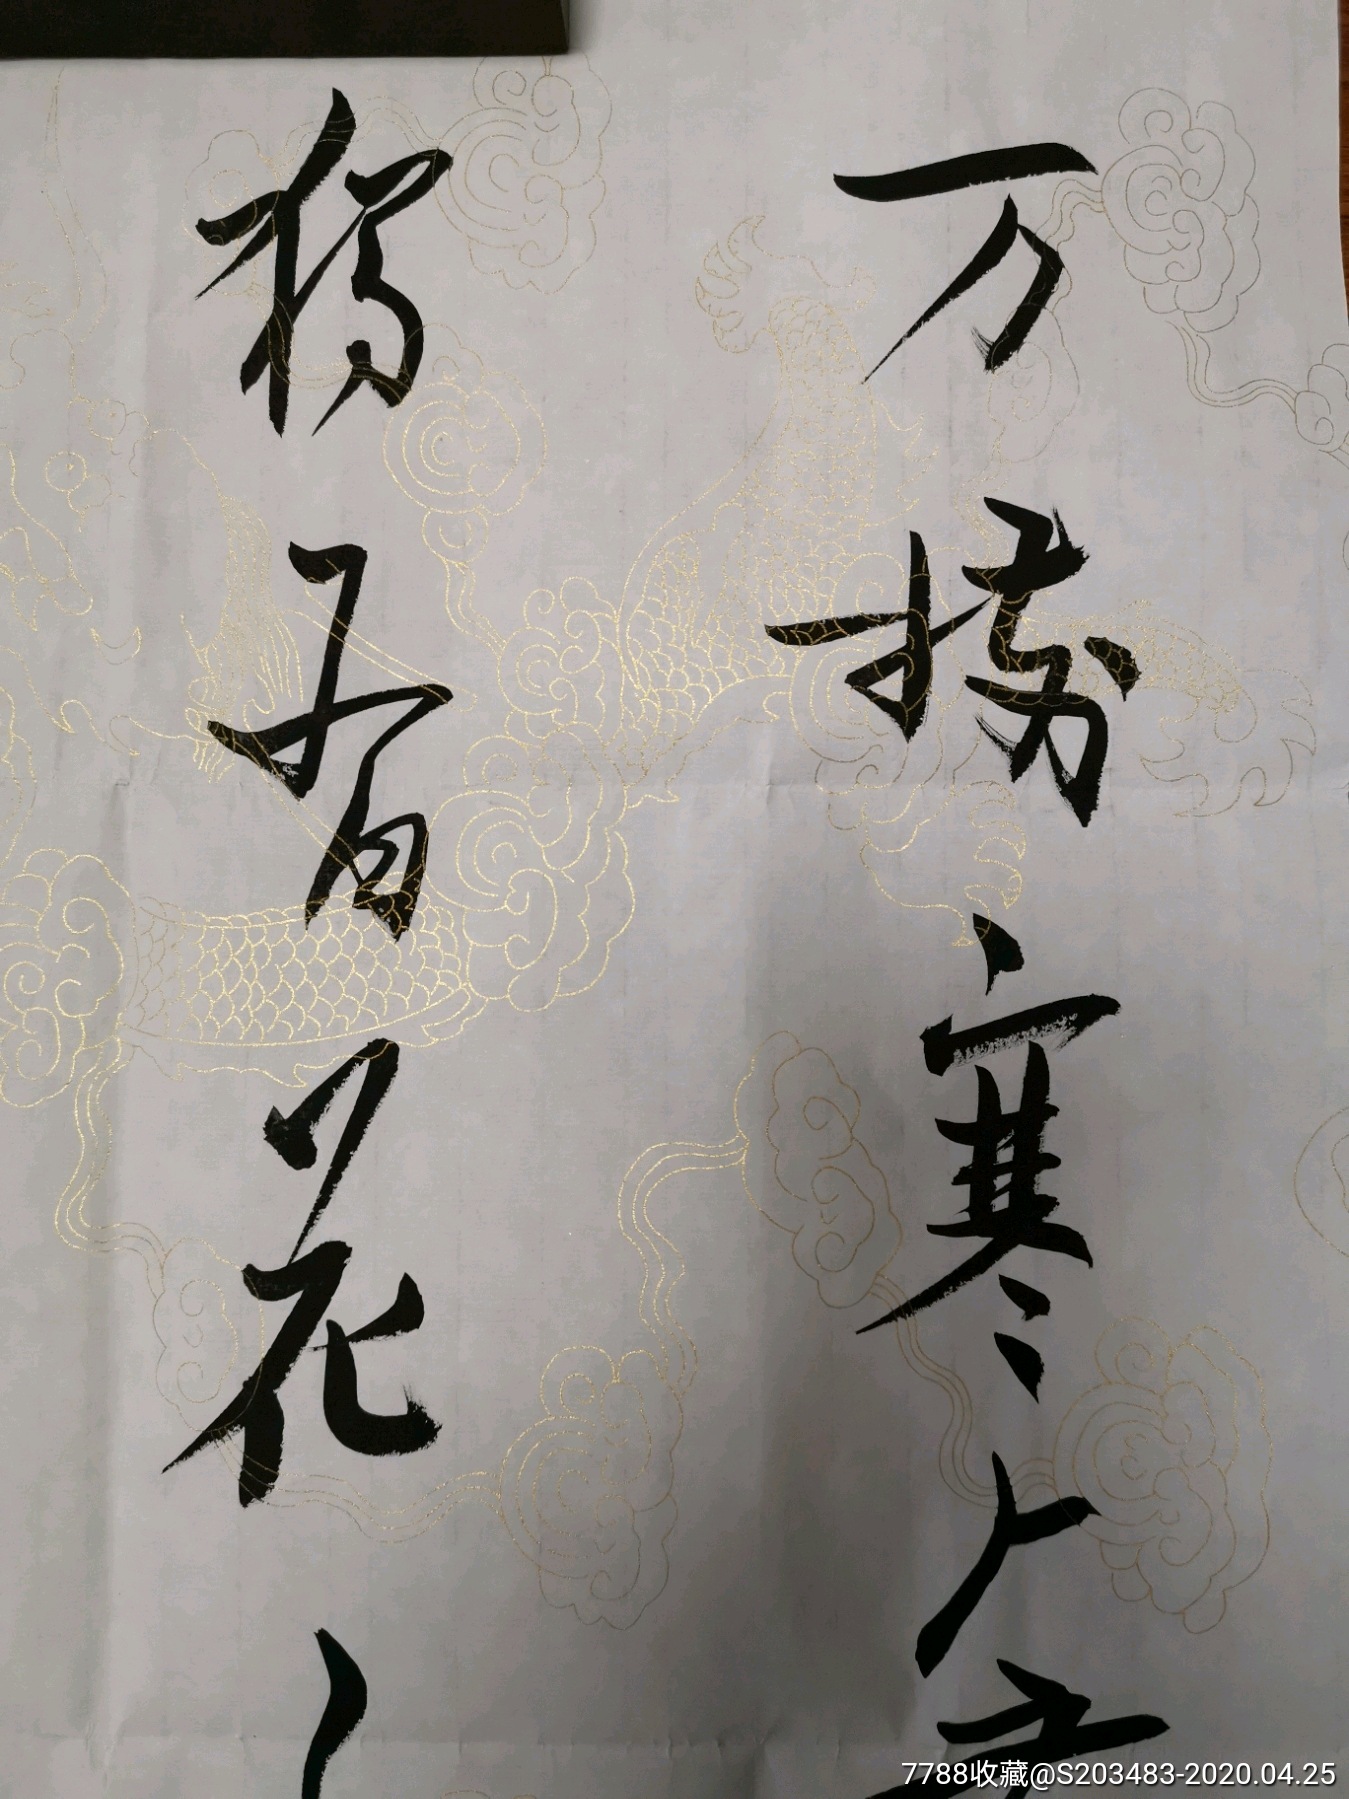 万樹寒
獨有花
7788收藏@S203483-2020.04.25